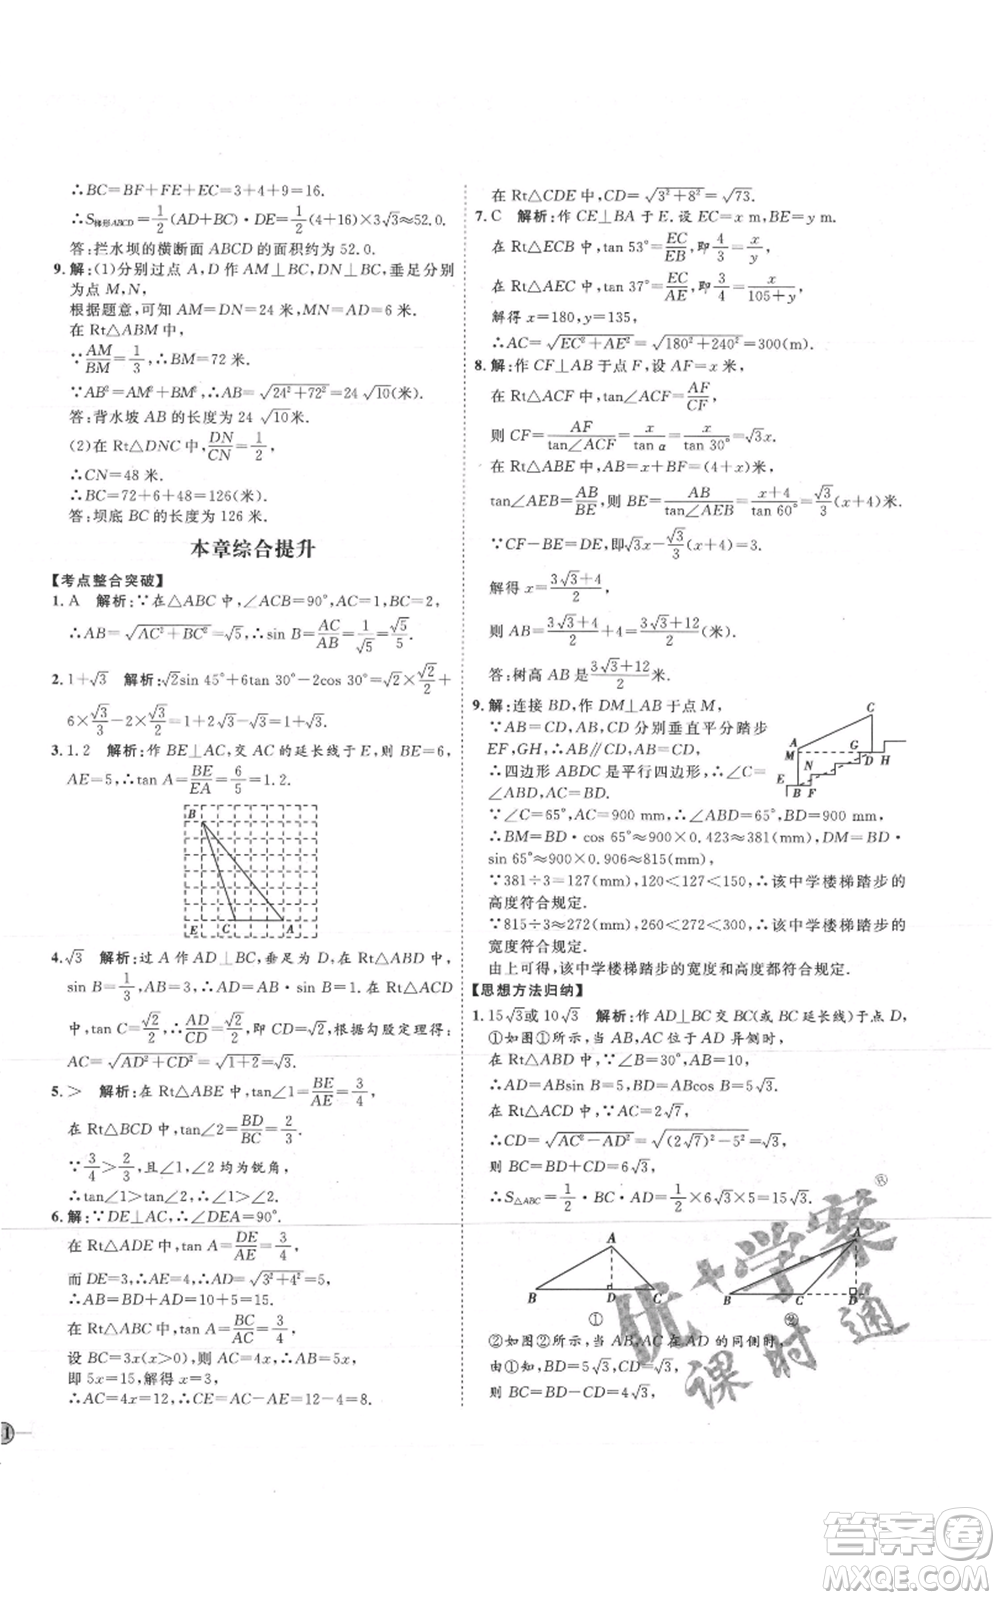 ∴BC=BF+FE+EC=3+4+9=16.
∴S梯形ABCD=1/2(AD+BC)·DE=1/2(4+16)×3√3≈52.0.
答:拦水坝的横断面 ABCD 的面积约为 52.0.
9.解:(1)分别过点 A,D 作 AM⊥BC,DN⊥BC,垂足分别
为点 M,N,
根据题意,可知 AM=DN=24 米,MN=AD=6 米.
在 Rt△ABM 中,
∵AM/BM=1/3,∴BM=72 米.
∵AB²=AM²+BM²,∴AB=√(24²+72²)=24√10(米).
答:背水坡 AB 的长度为 24√10米.
(2)在 Rt△DNC 中,DN/CN=1/2,
∴CN=48 米.
∴BC=72+6+48=126(米).
答:坝底 BC 的长度为 126 米.
本章综合提升
【考点整合突破】
1.A 解析:∵在△ABC 中,∠ACB=90°,AC=1,BC=2,
∴AB=√(AC²+BC²)=√5,∴sin B=AC/AB=1/√5=√5/5.
2.1+√3 解析:√2sin 45°+6tan 30°-2cos 30°=√2×√2/2+
6×√3/3-2×√3/2=1+2√3-√3=1+√3.
3.1.2 解析:作 BE⊥AC,交 AC 的延长线于 E,则 BE=6,
AE=5,∴tan A=BE/EA=6/5=1.2.
B
E C A
4.√3 解析:过 A 作 AD⊥BC,垂足为 D,在 Rt△ABD 中,
sin B=1/3,AB=3,∴AD=AB·sin B=1.在 Rt△ACD
中,tan C=√2/2,∴AD/CD=√2/2,即 CD=√2,根据勾股定理得:
AC=√(AD²+CD²)=√(1+2)=√3.
5.> 解析:在 Rt△ABE 中,tan∠1=BE/AE=3/4,
在 Rt△BCD 中,tan∠2=BD/BC=2/3,
∵3/4>2/3,且∠1,∠2 均为锐角,
∴tan∠1>tan∠2,∴∠1>∠2.
6.解:∵DE⊥AC,∴∠DEA=90°.
在 Rt△ADE 中,tan A=DE/AE=3/4,
而 DE=3,∴AE=4,∴AD=√(3²+4²)=5,
∴AB=AD+BD=5+10=15.
在 Rt△ABC 中,∵tan A=BC/AC=3/4,
设 BC=3x(x>0),则 AC=4x,∴AB=5x,
即 5x=15,解得 x=3,
∴AC=4x=12,∴CE=AC-AE=12-4=8.
在 Rt△CDE 中,CD=√(3²+8²)=√73.
7.C 解析:作 CE⊥BA 于 E.设 EC=x m,BE=y m.
在 Rt△ECB 中,tan 53°=EC/EB,即4/3=x/y,
在 Rt△AEC 中,tan 37°=EC/AE,即3/4=x/(105+y),
解得 x=180,y=135,
∴AC=√(EC²+AE²)=√(180²+240²)=300(m).
8.解:作 CF⊥AB 于点 F,设 AF=x 米,
在 Rt△ACF 中,tan∠ACF=AF/CF,
则 CF=AF/tan∠ACF=x/tan α=x/tan 30°=√3x.
在 Rt△ABE 中,AB=x+BF=(4+x)米,
tan∠AEB=AB/BE,则 BE=AB/tan∠AEB=(x+4)/tan 60°=√3/3(x+4)米.
∵CF-BE=DE,即√3x-√3/3(x+4)=3.
解得 x=(3√3+4)/2,
则 AB=(3√3+4)/2+4=(3√3+12)/2(米).
答:树高 AB 是(3√3+12)/2米.
9.解:连接 BD,作 DM⊥AB 于点 M,
∵AB=CD,AB,CD 分别垂直平分踏步
EF,GH,∴AB∥CD,AB=CD,
∴四边形 ABDC 是平行四边形,∴∠C=
∠ABD,AC=BD.
∵∠C=65°,AC=900 mm,∴∠ABD=65°,BD=900 mm,
∴BM=BD·cos 65°≈900×0.423≈381(mm),DM=BD·
sin 65°≈900×0.906≈815(mm),
∵381÷3=127(mm),120<127<150,∴该中学楼梯踏步的
高度符合规定.
∵815÷3≈272(mm),260<272<300,∴该中学楼梯踏步的
宽度符合规定.
由上可得,该中学楼梯踏步的宽度和高度都符合规定.
C
A
M
G
D H
N
E
B F
【思想方法归纳】
1.15√3或 10√3 解析:作 AD⊥BC 交 BC(或 BC 延长线)于点 D,
①如图①所示,当 AB,AC 位于 AD 异侧时,
在 Rt△ABD 中,∵∠B=30°,AB=10,
∴AD=ABsin B=5,BD=ABcos B=5√3,
在 Rt△ACD 中,∵AC=2√7,
∴CD=√(AC²-AD²)=√((2√7)²-5²)=√3,
则 BC=BD+CD=6√3,
∴S△ABC=1/2·BC·AD=1/2×6√3×5=15√3;
A
B D C
①
A
B C D
②
②如图②所示,当 AB,AC 在 AD 的同侧时,
由①知,BD=5√3,CD=√3,
则 BC=BD-CD=4√3,
优+学案
®
课时通
答案卷
MXQE.COM